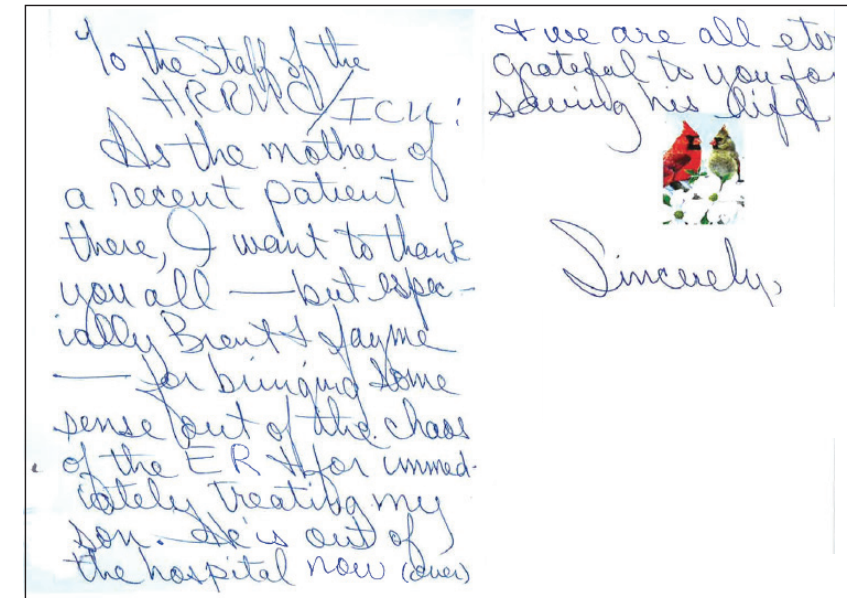 To the Staff of the
HRRMC/ICU:
As the mother of
a recent patient
there, I want to thank
you all — but espec-
ially Brent & Jayme
— for bringing some
sense out of the chaos
of the ER & for immed-
iately treating my
son. He is out of
the hospital now (over)
& we are all eter
grateful to you fo
saving his life
Sincerely,